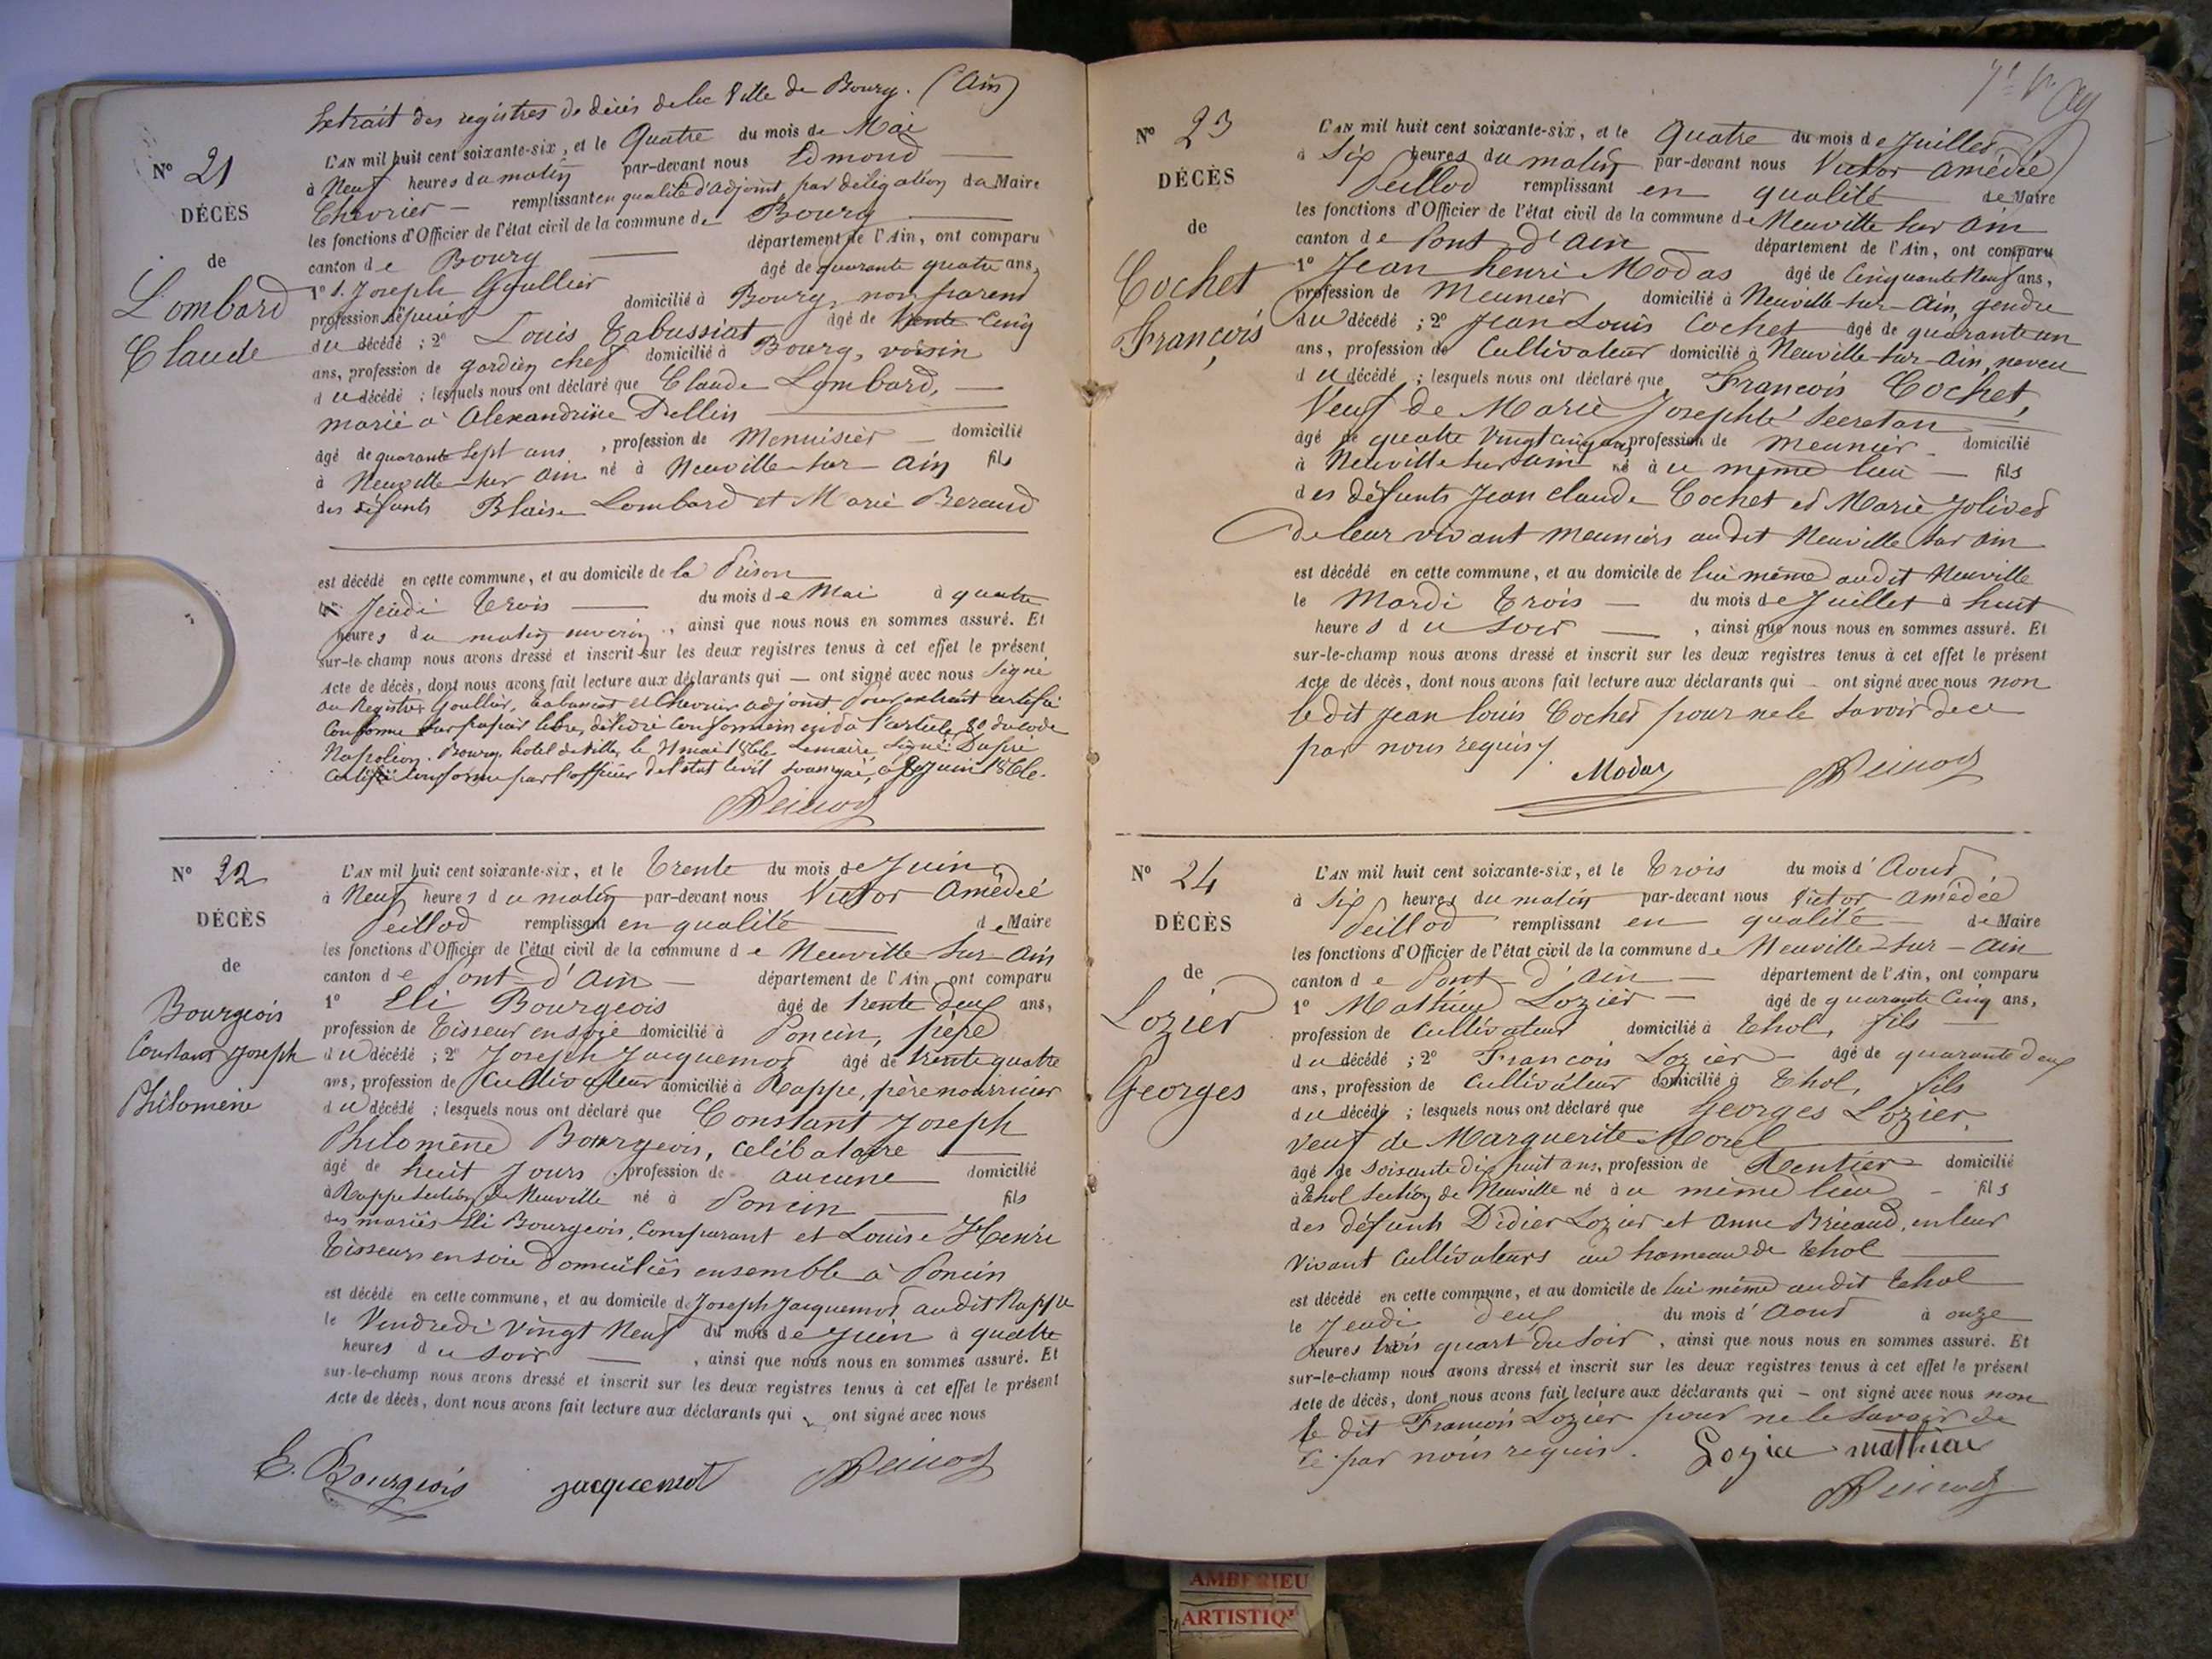 Extrait des registres de décès de la Ville de Bourg. (Ain)
N° 21
DÉCÈS
de
Lombard
Claude
L'AN mil huit cent soixante-six, et le Quatre du mois de Mai
à Neuf heures du matin par-devant nous Edmond
Chevrier remplissant en qualité d'adjoint par délégation du Maire
les fonctions d'Officier de l'état civil de la commune de Bourg
canton de Bourg département de l'Ain, ont comparu
1° Joseph Goullier âgé de quarante quatre ans,
profession domicilié à Bourg, non parent
du décédé ; 2° Louis Tabussiat âgé de trente cinq
ans, profession de gardien chef domicilié à Bourg, voisin
du décédé ; lesquels nous ont déclaré que Claude Lombard,
marié à Alexandrine Dullin
âgé de quarante sept ans, profession de Menuisier domicilié
à Neuville sur Ain né à Neuville sur Ain fils
des défunts Blaise Lombard et Marie Beraud
est décédé en cette commune, et au domicile de la Prison
le Jeudi Trois du mois de Mai à quatre
heures du matin environ, ainsi que nous nous en sommes assuré. Et
sur-le-champ nous avons dressé et inscrit sur les deux registres tenus à cet effet le présent
Acte de décès, dont nous avons fait lecture aux déclarants qui — ont signé avec nous Signé
au Registre Goullier, Tabussiat et Chevrier adjoint Pour extrait certifié
Conforme sur papier libre, délivré conformément à l'article 80 du code
Napoléon. Bourg, hotel de ville, le 31 mai 1866 Le maire signé:
Certifié conforme par l'officier de l'état civil soussigné, juin 1866.
N° 22
DÉCÈS
de
Bourgeois
Constant Joseph
Philomène
L'AN mil huit cent soixante-six, et le Trente du mois de Juin
à Neuf heures du matin par-devant nous Victor Amédée
Peillod remplissant en qualité de Maire
les fonctions d'Officier de l'état civil de la commune de Neuville sur Ain
canton de Pont d'Ain département de l'Ain, ont comparu
1° Eli Bourgeois âgé de trente deux ans,
profession de Tisseur en soie domicilié à Poncin, père
du décédé ; 2° Joseph Jacquemot âgé de trente quatre
ans, profession de Cultivateur domicilié à Rappe, père nourricier
du décédé ; lesquels nous ont déclaré que Constant Joseph
Philomène Bourgeois, célibataire
âgé de huit jours, profession de aucune domicilié
à Rappe section de Neuville né à Poncin fils
des mariés Eli Bourgeois, comparant et Louise Henri
Tisseurs en soie domiciliés ensemble à Poncin
est décédé en cette commune, et au domicile de Joseph Jacquemot audit Rappe
le Vendredi vingt Neuf du mois de Juin à quatre
heures du soir, ainsi que nous nous en sommes assuré. Et
sur-le-champ nous avons dressé et inscrit sur les deux registres tenus à cet effet le présent
Acte de décès, dont nous avons fait lecture aux déclarants qui ont signé avec nous
E. Bourgeois jacquemot
N° 23
DÉCÈS
de
Cochet
François
L'AN mil huit cent soixante-six, et le Quatre du mois de Juillet
à Six heures du matin par-devant nous Victor Amédée
Peillod remplissant en qualité de Maire
les fonctions d'Officier de l'état civil de la commune de Neuville sur Ain
canton de Pont d'Ain département de l'Ain, ont comparu
1° Jean henri Modas âgé de Cinquante Neuf ans,
profession de Meunier domicilié à Neuville-sur-Ain, gendre
du décédé ; 2° Jean Louis Cochet âgé de quarante un
ans, profession de Cultivateur domicilié à Neuville-sur-Ain, neveu
du décédé ; lesquels nous ont déclaré que François Cochet,
Veuf de Marie Josephte Secretan
âgé de quatre vingt cinq ans, profession de Meunier domicilié
à Neuville sur ain né au même lieu fils
des défunts Jean claude Cochet et Marie Jolivet
de leur vivant Meuniers audit Neuville sur Ain
est décédé en cette commune, et au domicile de lui même audit Neuville
le Mardi Trois du mois de Juillet à huit
heures du soir, ainsi que nous nous en sommes assuré. Et
sur-le-champ nous avons dressé et inscrit sur les deux registres tenus à cet effet le présent
Acte de décès, dont nous avons fait lecture aux déclarants qui — ont signé avec nous non
le dit Jean Louis Cochet pour ne le savoir de ce
par nous requis.
Modas
N° 24
DÉCÈS
de
Lozier
Georges
L'AN mil huit cent soixante-six, et le Trois du mois d'Aout
à Six heures du matin par-devant nous Victor Amédée
Peillod remplissant en qualité de Maire
les fonctions d'Officier de l'état civil de la commune de Neuville-sur-Ain
canton de Pont-d'Ain département de l'Ain, ont comparu
1° Mathieu Lozier âgé de quarante Cinq ans,
profession de Cultivateur domicilié à Thol, fils
du décédé ; 2° François Lozier âgé de quarante deux
ans, profession de Cultivateur domicilié à Thol, fils
du décédé ; lesquels nous ont déclaré que Georges Lozier,
Veuf de Marguerite Morel
âgé de soixante dix huit ans, profession de Rentier domicilié
à Thol section de Neuville né au même lieu fils
des défunts Didier Lozier et Anne Bricaud, en leur
Vivant Cultivateurs au hameau de Thol
est décédé en cette commune, et au domicile de lui même audit Thol
le Jeudi deux du mois d'Aout à onze
heures trois quart du soir, ainsi que nous nous en sommes assuré. Et
sur-le-champ nous avons dressé et inscrit sur les deux registres tenus à cet effet le présent
Acte de décès, dont nous avons fait lecture aux déclarants qui — ont signé avec nous non
le dit François Lozier pour ne le savoir de
ce par nous requis. Lozier mathieu
AMBERIEU
ARTISTIQ